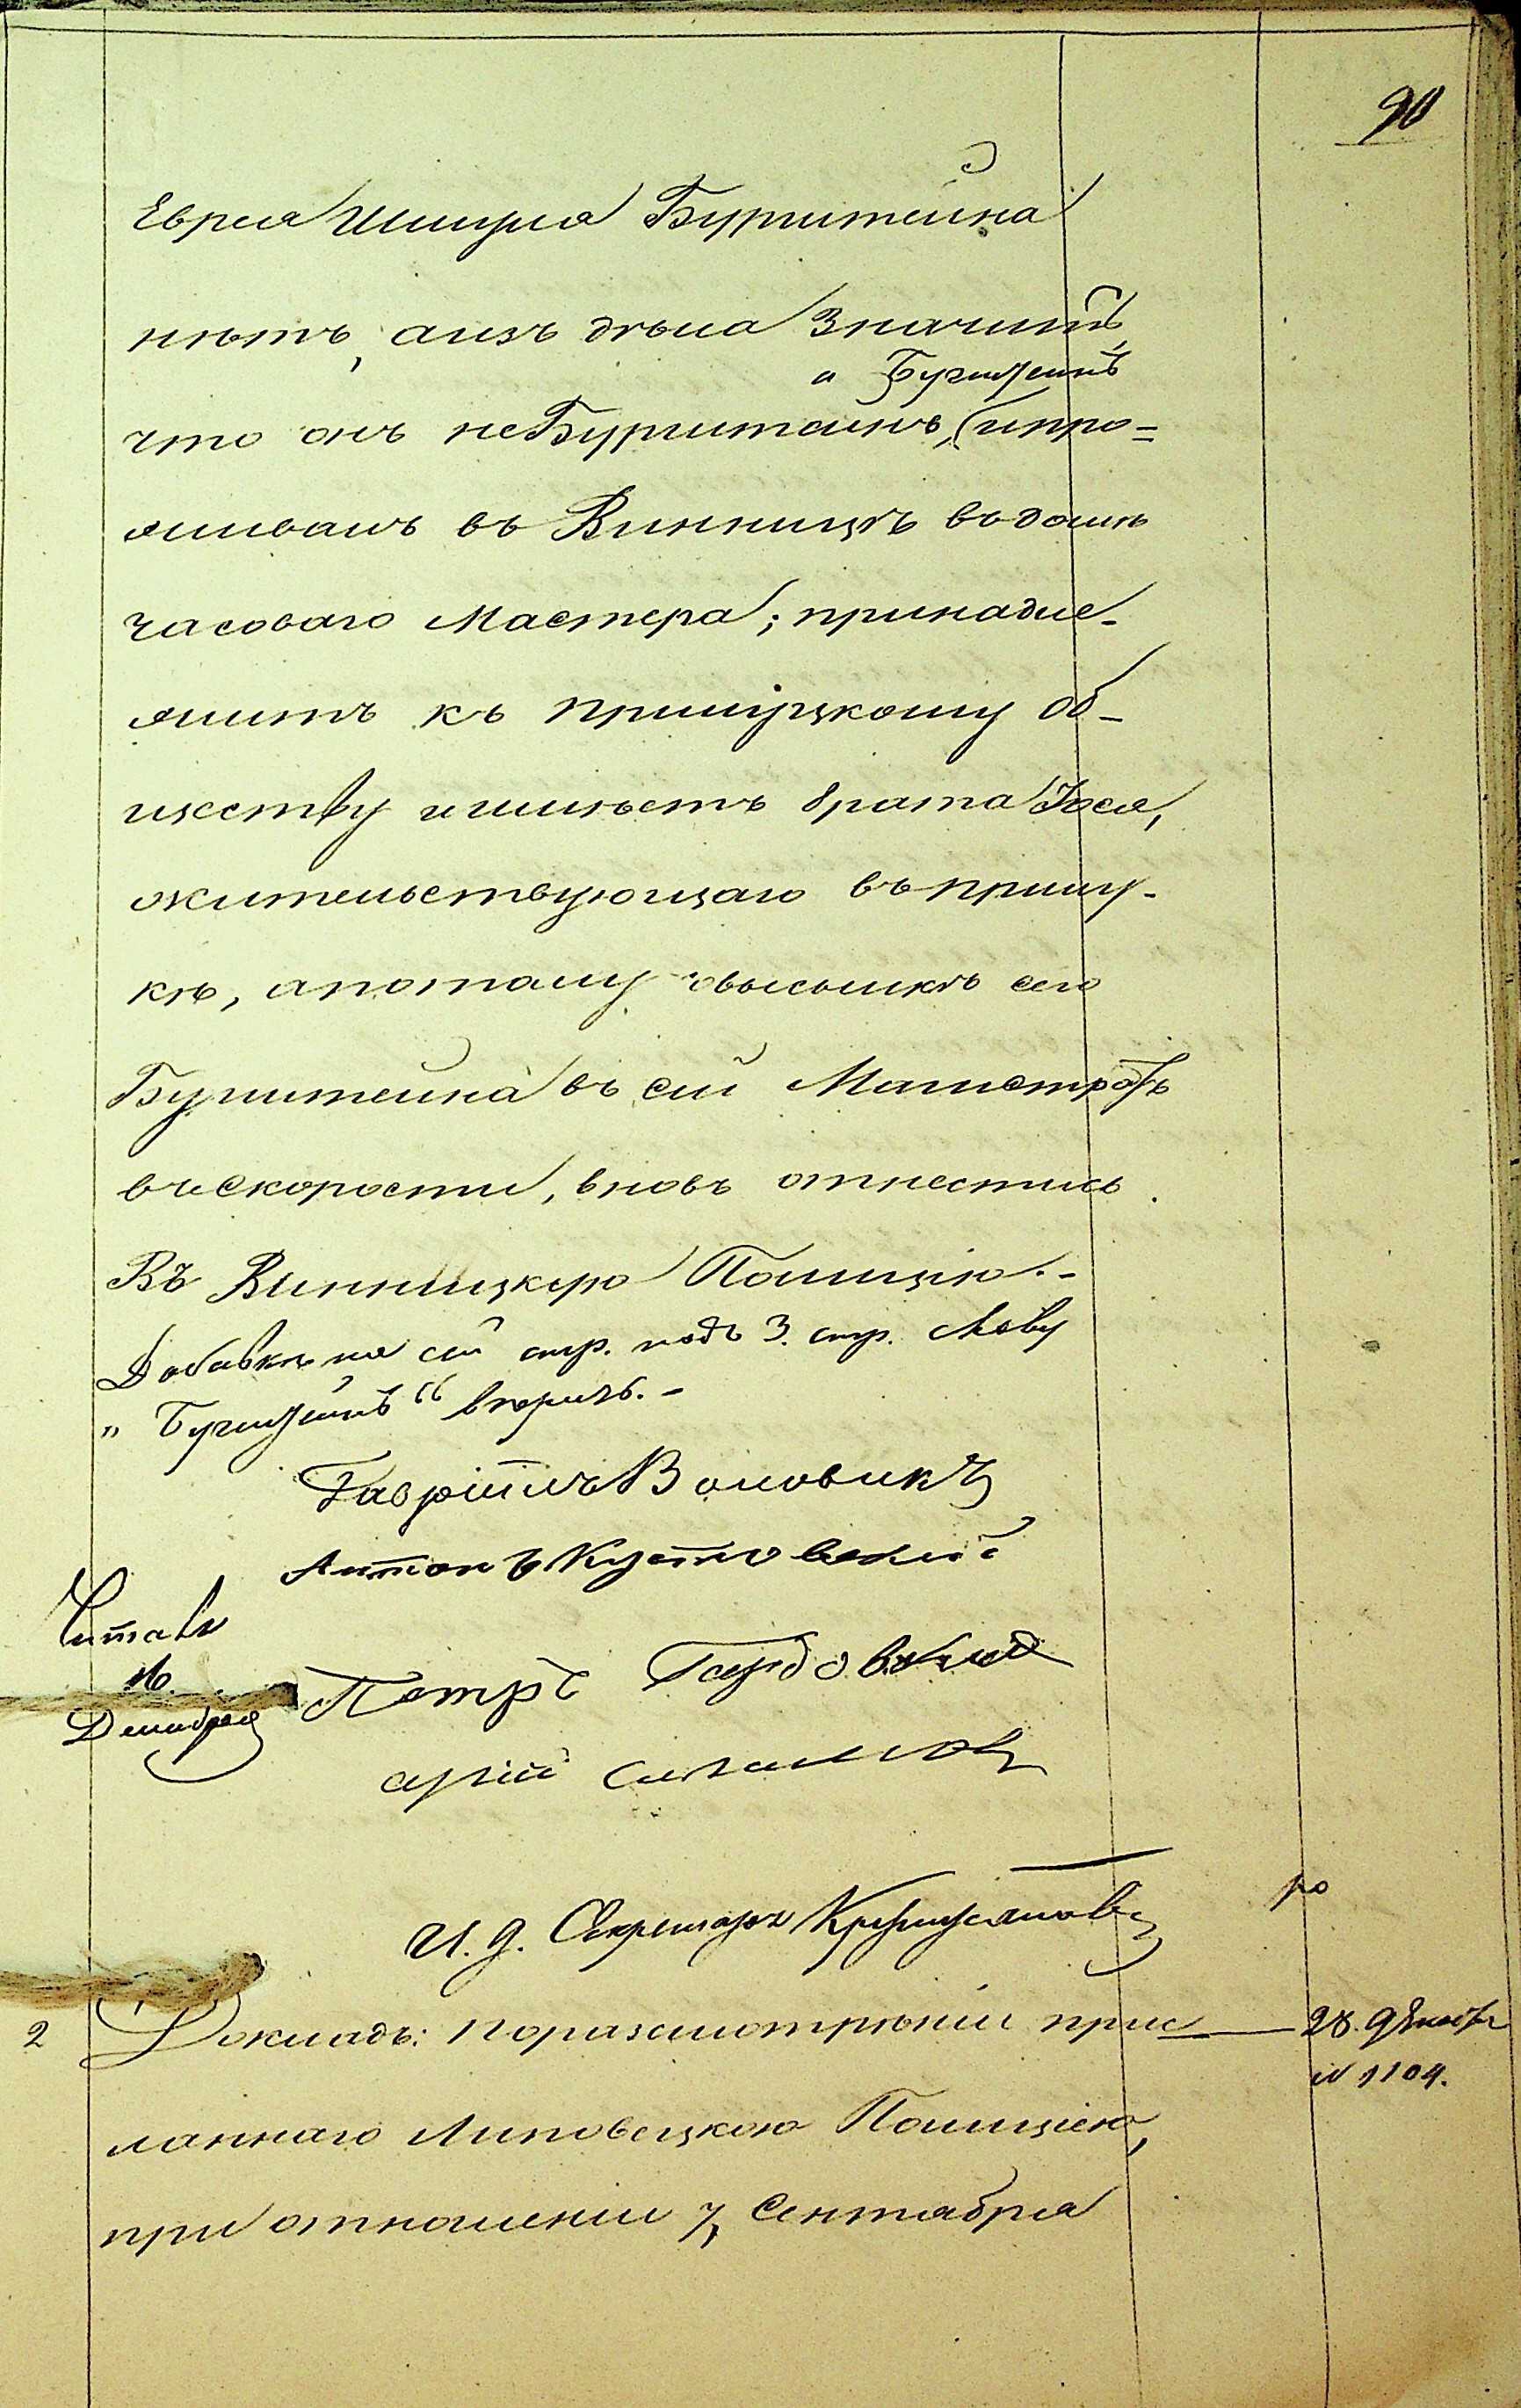 90
Еврея Шмуля Буршитейна
нѣтъ, аизъ дѣла значитъ,
а Бугштейнъ
что онъ неБурштейнъ, ипро=
живалъ въ Винницѣ въдомѣ
часоваго Мастера; принадле-
житъ къ прилуцкому об-
ществу иимѣетъ брата Іося,
жительствующаго въ прилу-
кѣ, апотому овысылкѣ сего
Бугштейна въ сей Магистратъ
въскорости, вновь отнестись
Въ Винницкую Полицію.-
Добавкѣ на сей стр. подъ 3. стр. слову
„Бугштейнъ“ вѣрить.-
Гавріилъ Воловикъ
Антонъ Кустовский
Читалъ
16.
Декабря
Петръ
И. д. Секретаря
2
Докладъ: поразсмотрѣніи прис
28. Декабр
N 1104.
ланнаго Липовецкою Полиціею,
при отношеніи 7, Сентября